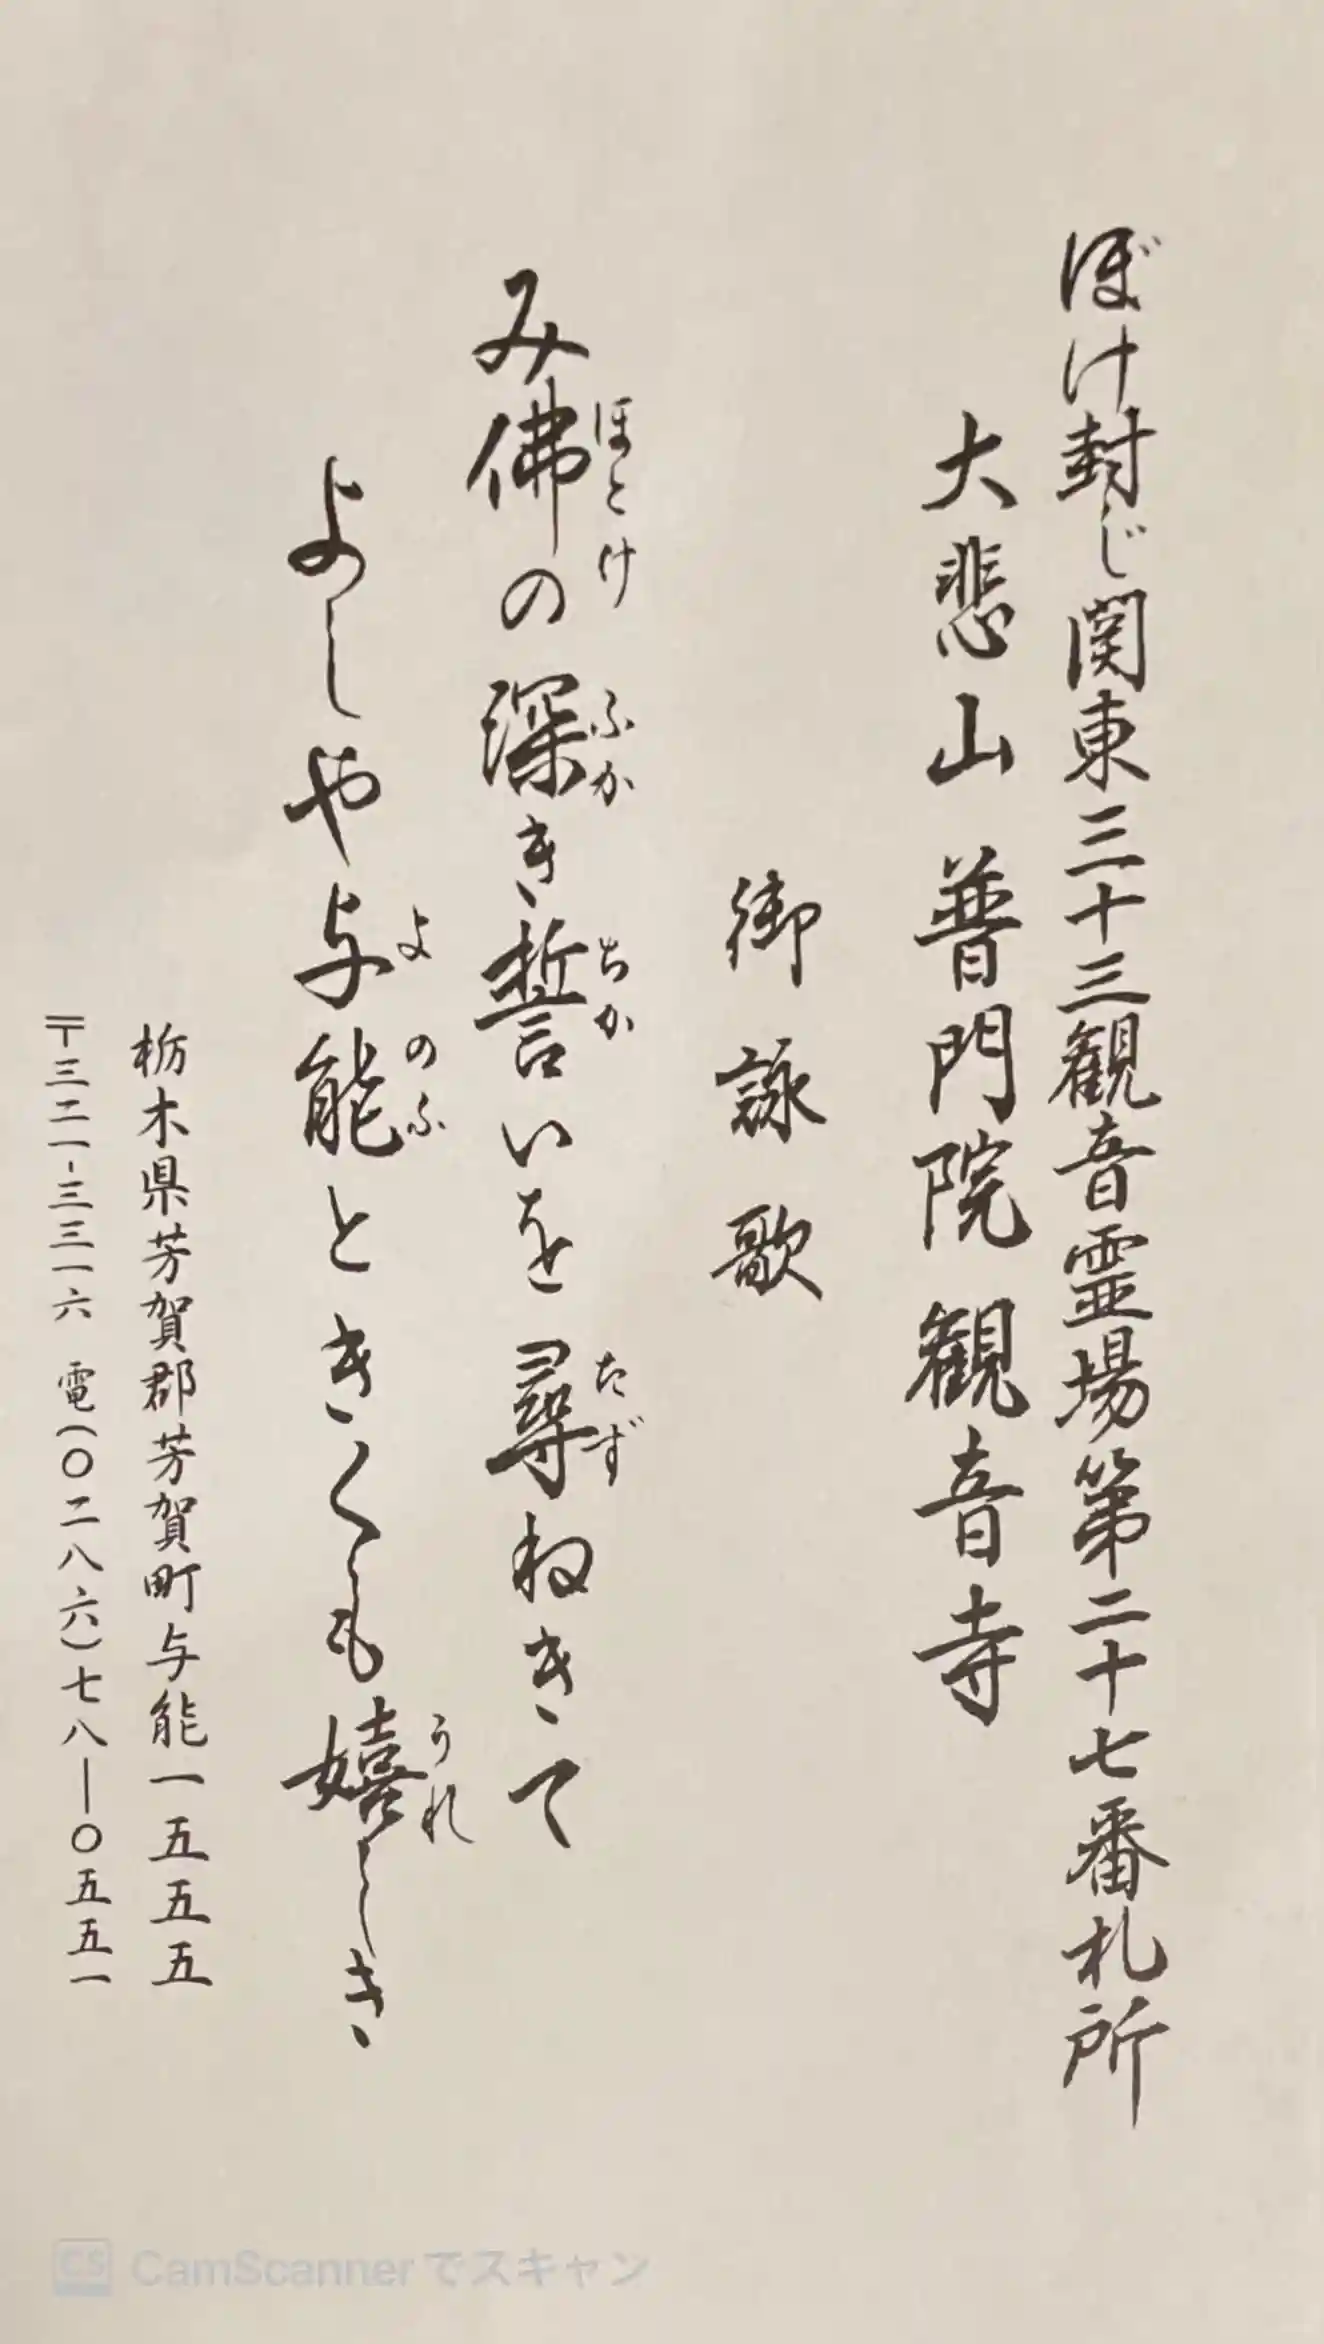 ぼけ封じ関東三十三観音霊場第二十七番札所
大悲山 普門院 観音寺
御詠歌
み佛の深き誓いを尋ねきて
ほとけ ふか ちか たず
よしや与能ときくも嬉しき
よ のふ うれ
栃木県芳賀郡芳賀町与能一五五五
〒三二一-三三一六 電(〇二八六)七八―〇五五一
CS CamScannerでスキャン